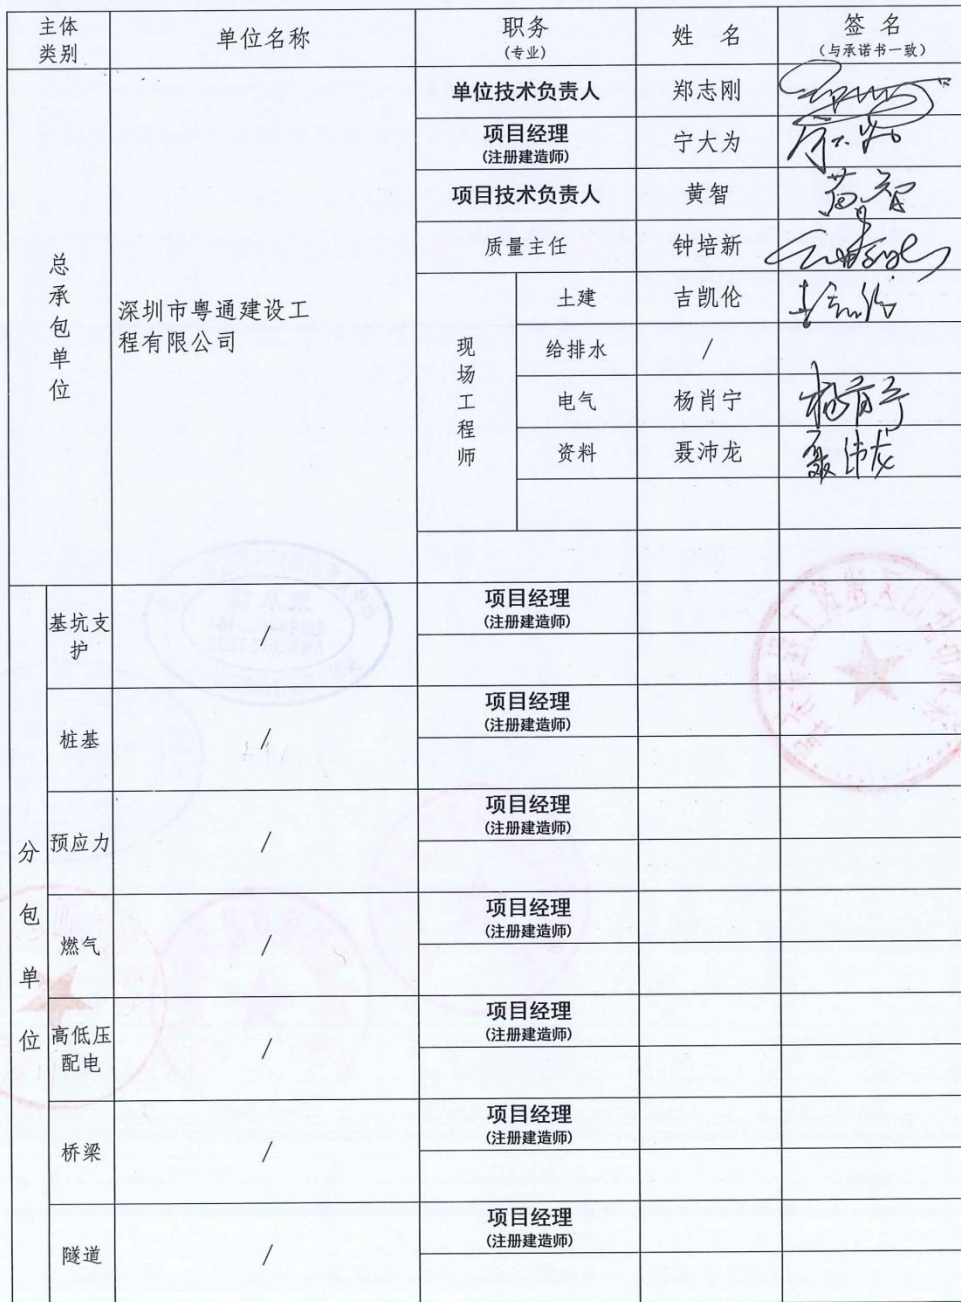 主体类别 单位名称 职务（专业） 姓 名 签 名（与承诺书一致）
总承包单位
深圳市粤通建设工
程有限公司
单位技术负责人 郑志刚
项目经理（注册建造师） 宁大为
项目技术负责人 黄智 黄智
质量主任 钟培新
现场工程师
土建 吉凯伦
给排水 /
电气 杨肖宁 杨肖宁
资料 聂沛龙 聂沛龙
分包单位
基坑支护 / 项目经理（注册建造师）
桩基 / 项目经理（注册建造师）
预应力 / 项目经理（注册建造师）
燃气 / 项目经理（注册建造师）
高低压配电 / 项目经理（注册建造师）
桥梁 / 项目经理（注册建造师）
隧道 / 项目经理（注册建造师）